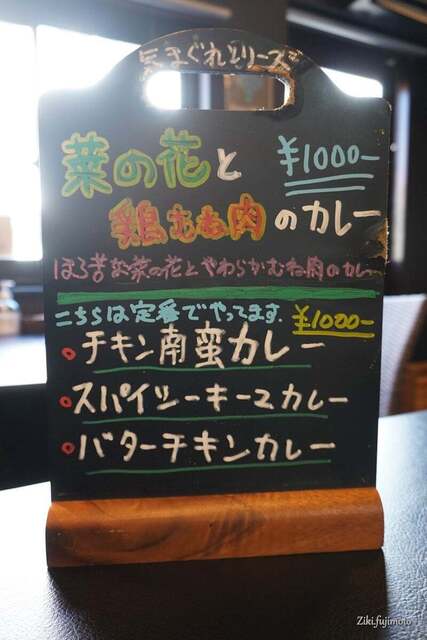 気まぐれシリーズ
菜の花と
¥1000-
鶏むね肉のカレー
ほろ苦な菜の花とやわらかむね肉のカレー
こちらは定番でやってます。
¥1000-
チキン南蛮カレー
スパイシーキーマカレー
バターチキンカレー
Ziki.fujimoto